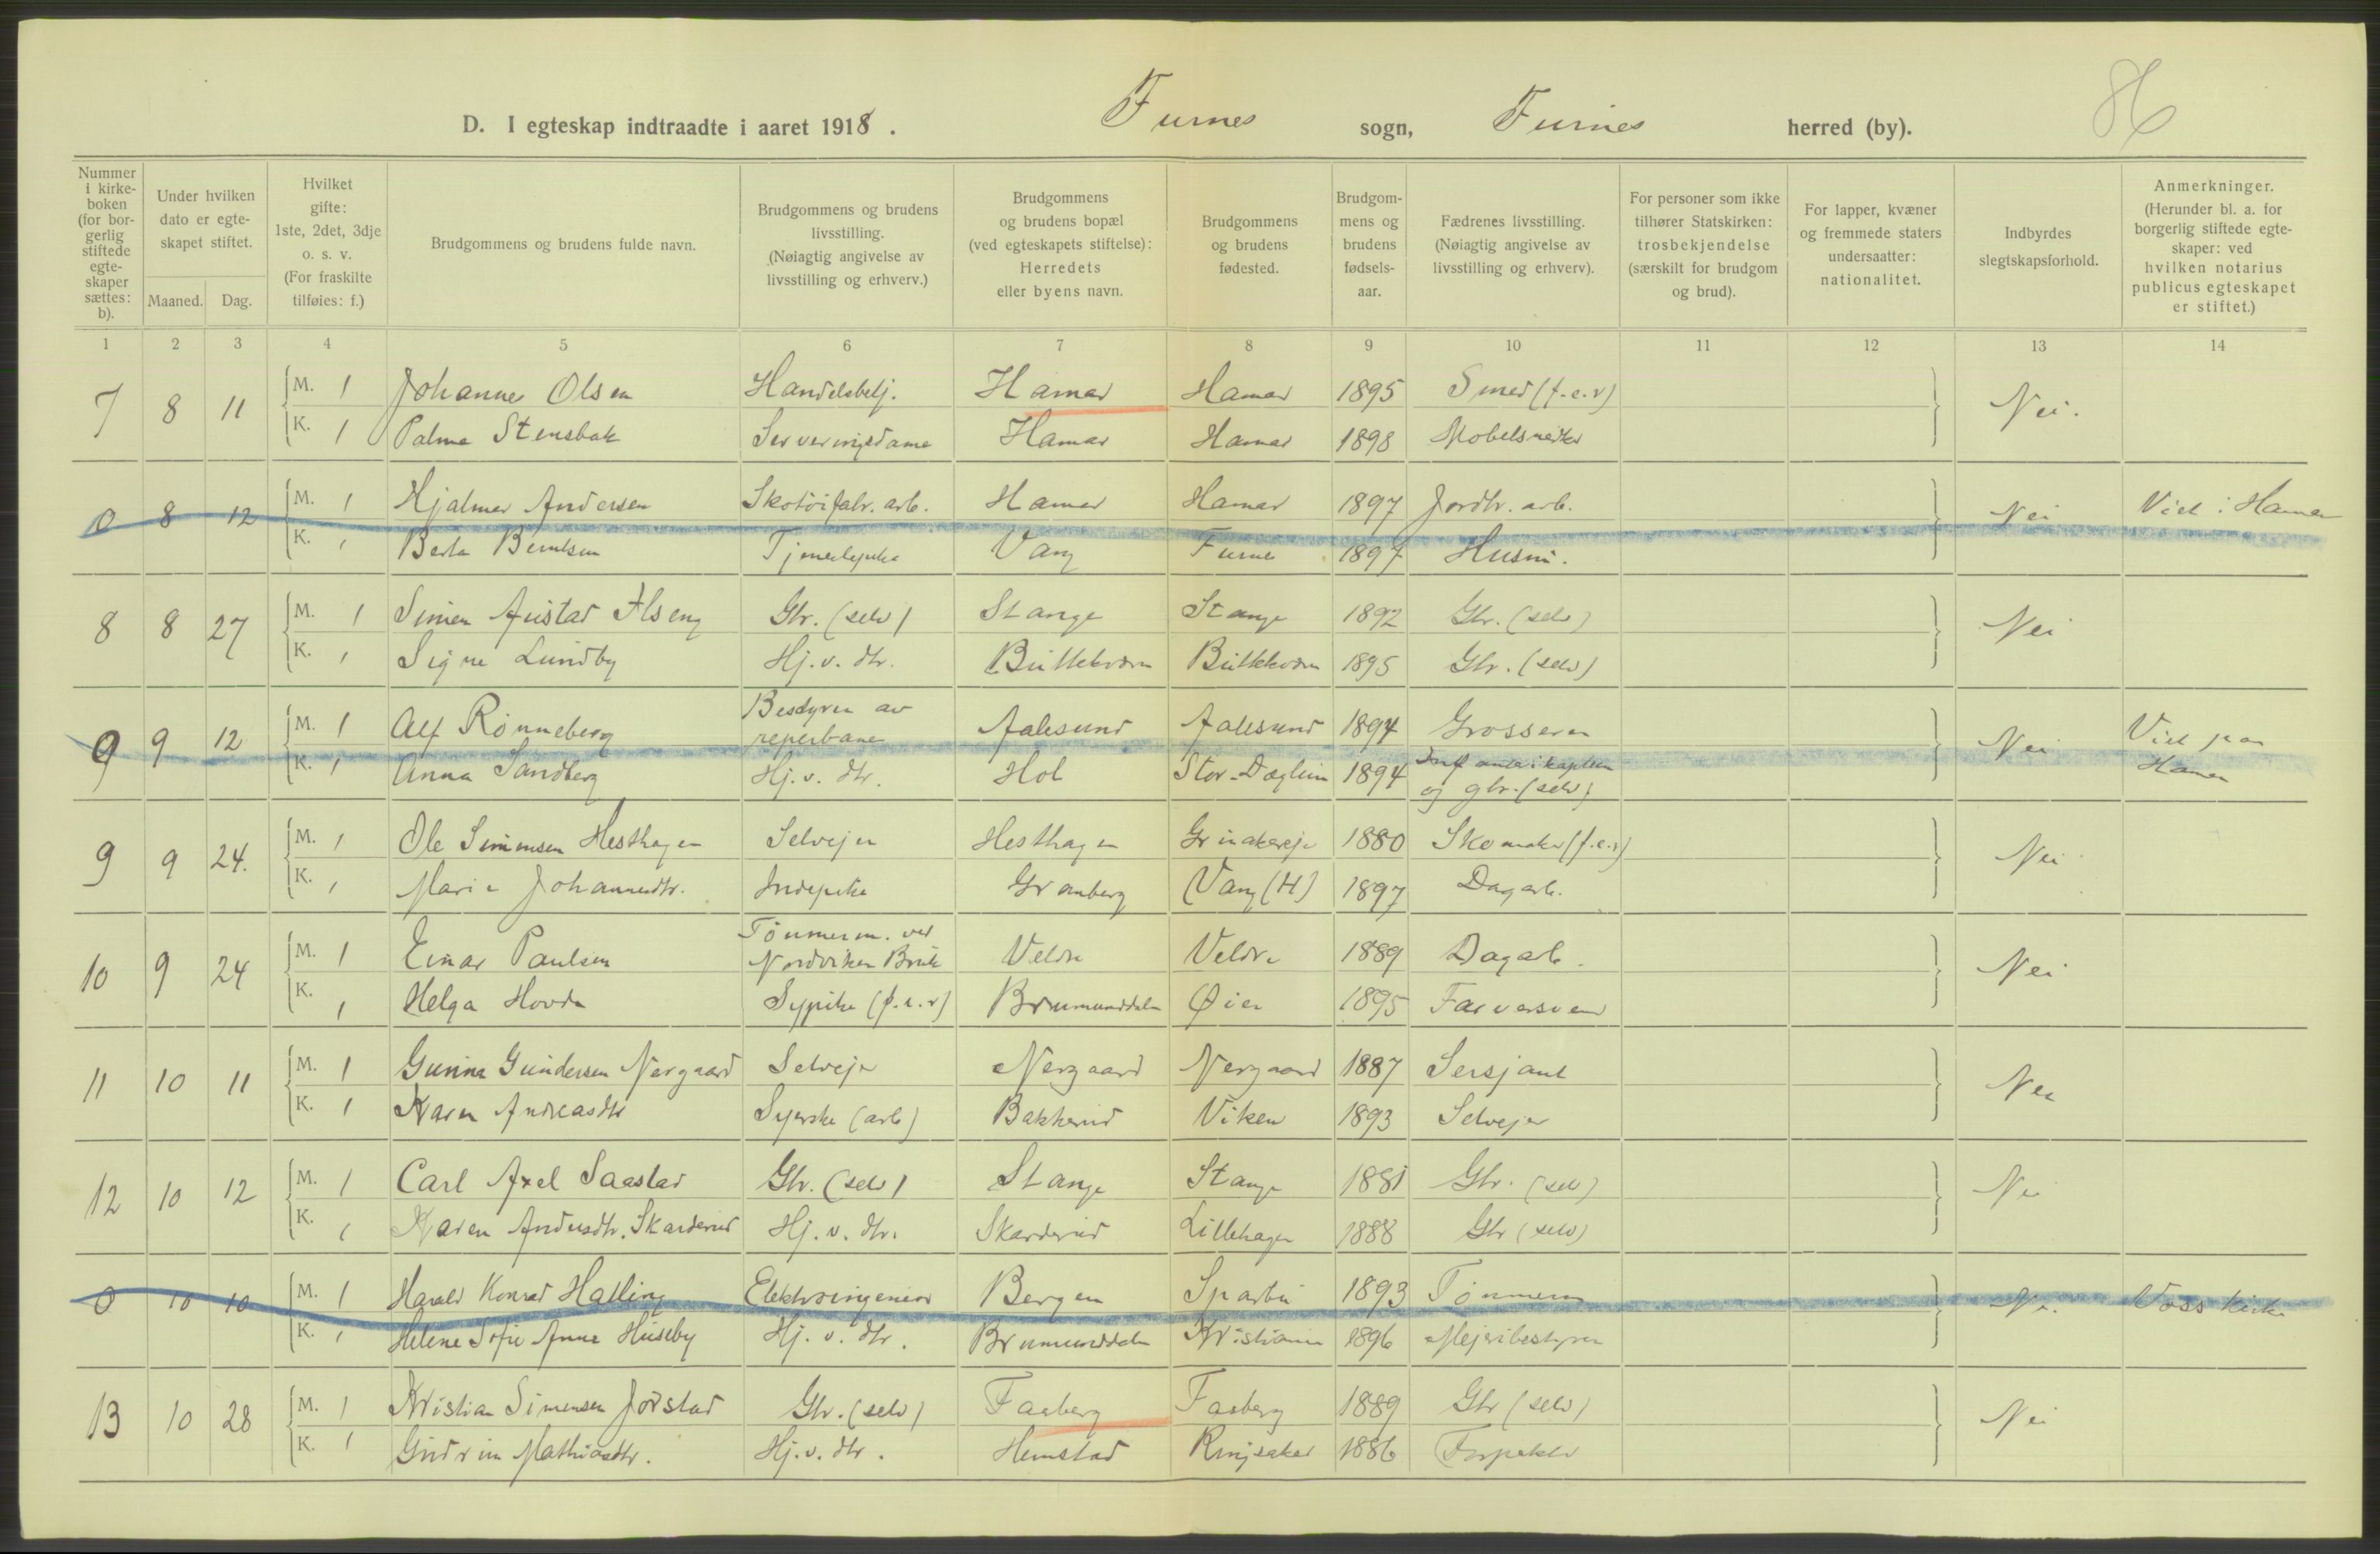 86
D. I egteskap indtraadte i aaret 1918. Furnes sogn, Furnes herred (by).
Nummer i kirkeboken (for borgerlig stiftede egteskaper sættes: b).
Under hvilken dato er egteskapet stiftet.
Maaned. Dag.
Hvilket gifte: 1ste, 2det, 3dje o. s. v. (For fraskilte tilføies: f.)
Brudgommens og brudens fulde navn.
Brudgommens og brudens livsstilling. (Nøiagtig angivelse av livsstilling og erhverv.)
Brudgommens og brudens bopæl (ved egteskapets stiftelse): Herredets eller byens navn.
Brudgommens og brudens fødested.
Brudgommens og brudens fødselsaar.
Fædrenes livsstilling. (Nøiagtig angivelse av livsstilling og erhverv).
For personer som ikke tilhører Statskirken: trosbekjendelse (særskilt for brudgom og brud).
For lapper, kvæner og fremmede staters undersaatter: nationalitet.
Indbyrdes slegtskapsforhold.
Anmerkninger. (Herunder bl. a. for borgerlig stiftede egteskaper: ved hvilken notarius publicus egteskapet er stiftet.)
1 2 3 4 5 6 7 8 9 10 11 12 13 14
7 8 11 M. 1 Johannes Olsen Handelsbetj. Hamar Hamar 1895 Smed (f.e.r) Nei.
K. 1 Palma Stensbak Serveringsdame Hamar Hamar 1898 Møbelsnedker
0 8 12 M. 1 Hjalmar Andersen Skotøifabr. arb. Hamar Hamar 1897 Jordbr. arb. Nei Viet i Hamar
K. 1 Berta Berntsen Tjenestepike Vang Furnes 1897 Husm.
8 8 27 M. 1 Simen Austad Ilseng Gbr. (selv) Stange Stange 1892 Gbr. (selv) Nei
K. 1 Signe Lundby Hj. v. dtr. Buttekværn Buttekværn 1895 Gbr. (selv)
0 9 12 M. 1 Alf Rønneberg Bestyrer av reperbane Aalesund Aalesund 1894 Grosserer Nei Viet paa Hamar
K. 1 Anna Sandberg Hj. v. dtr. Hol Stor-Døglum 1894 Infanterikaptein og gbr. (selv)
9 9 24. M. 1 Ole Simensen Hesthagen Selveier Hesthagen 1880 Skomaker (f.e.r) Nei
K. 1 Marie Johannesdtr. Indepike Granberg Vang (H) 1897 Dagarb.
10 9 24 M. 1 Einar Paulsen Tømmerm. ved Nordviken Bruk Veldre Veldre 1889 Dagarb. Nei
K. 1 Helga Hovde Sypike (f.e.r) Brumunddalen Øier 1895 Farversvend
11 10 11 M. 1 Gunnar Gundersen Nergaard Selveier Nergaard Nergaard 1887 Sersjant Nei
K. 1 Karen Andreasdtr Syerske (arb) Bakkerud Viken 1893 Selveier
12 10 12 M. 1 Carl Axel Saastad Gbr. (selv) Stange Stange 1881 Gbr. (selv) Nei
K. 1 Karen Andersdtr. Skarderud Hj. v. dtr. Skarderud Lillehagen 1888 Gbr (selv)
0 10 10 M. 1 Harald Konrad Halling Elektroingeniør Bergen Sparbu 1893 Tømmerm Nei. Voss kirke
K. 1 Helene Sofie Anne Huseby Hj. v. dtr. Brumunddalen Kristiania 1896 Mejeribestyrer
13 10 28 M. 1 Kristian Simensen Jørstad Gbr. (selv) Faaberg Faaberg 1889 Gbr (selv) Nei
K. 1 Gudrun Mathiasdtr. Hj. v. dtr. Hemstad Ringsaker 1886 Forpakter